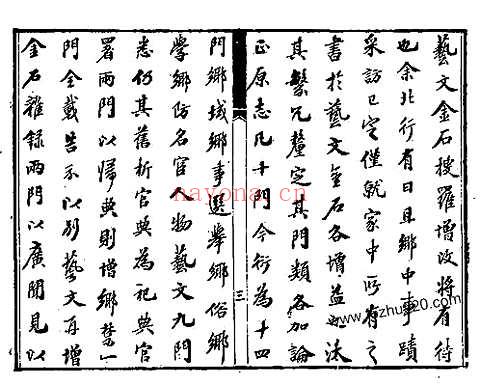 藝文金石搜羅增改將有待
也余北行有日且鄉中事蹟
采訪已定僅就家中所有之
書於藝文金石各增益如法
其繁冗釐定其門類各加論
正原志凡十門今衍為十四
三
門鄉域鄉事選舉鄉俗鄉
學鄉防名官人物藝文九門
悉仍其舊析官典為祀典官
署兩門以歸典則增鄉禁一
門全載告示以別藝文再增
金石雜錄兩門以廣聞見以
nayona.cn
www.zzhu520.com